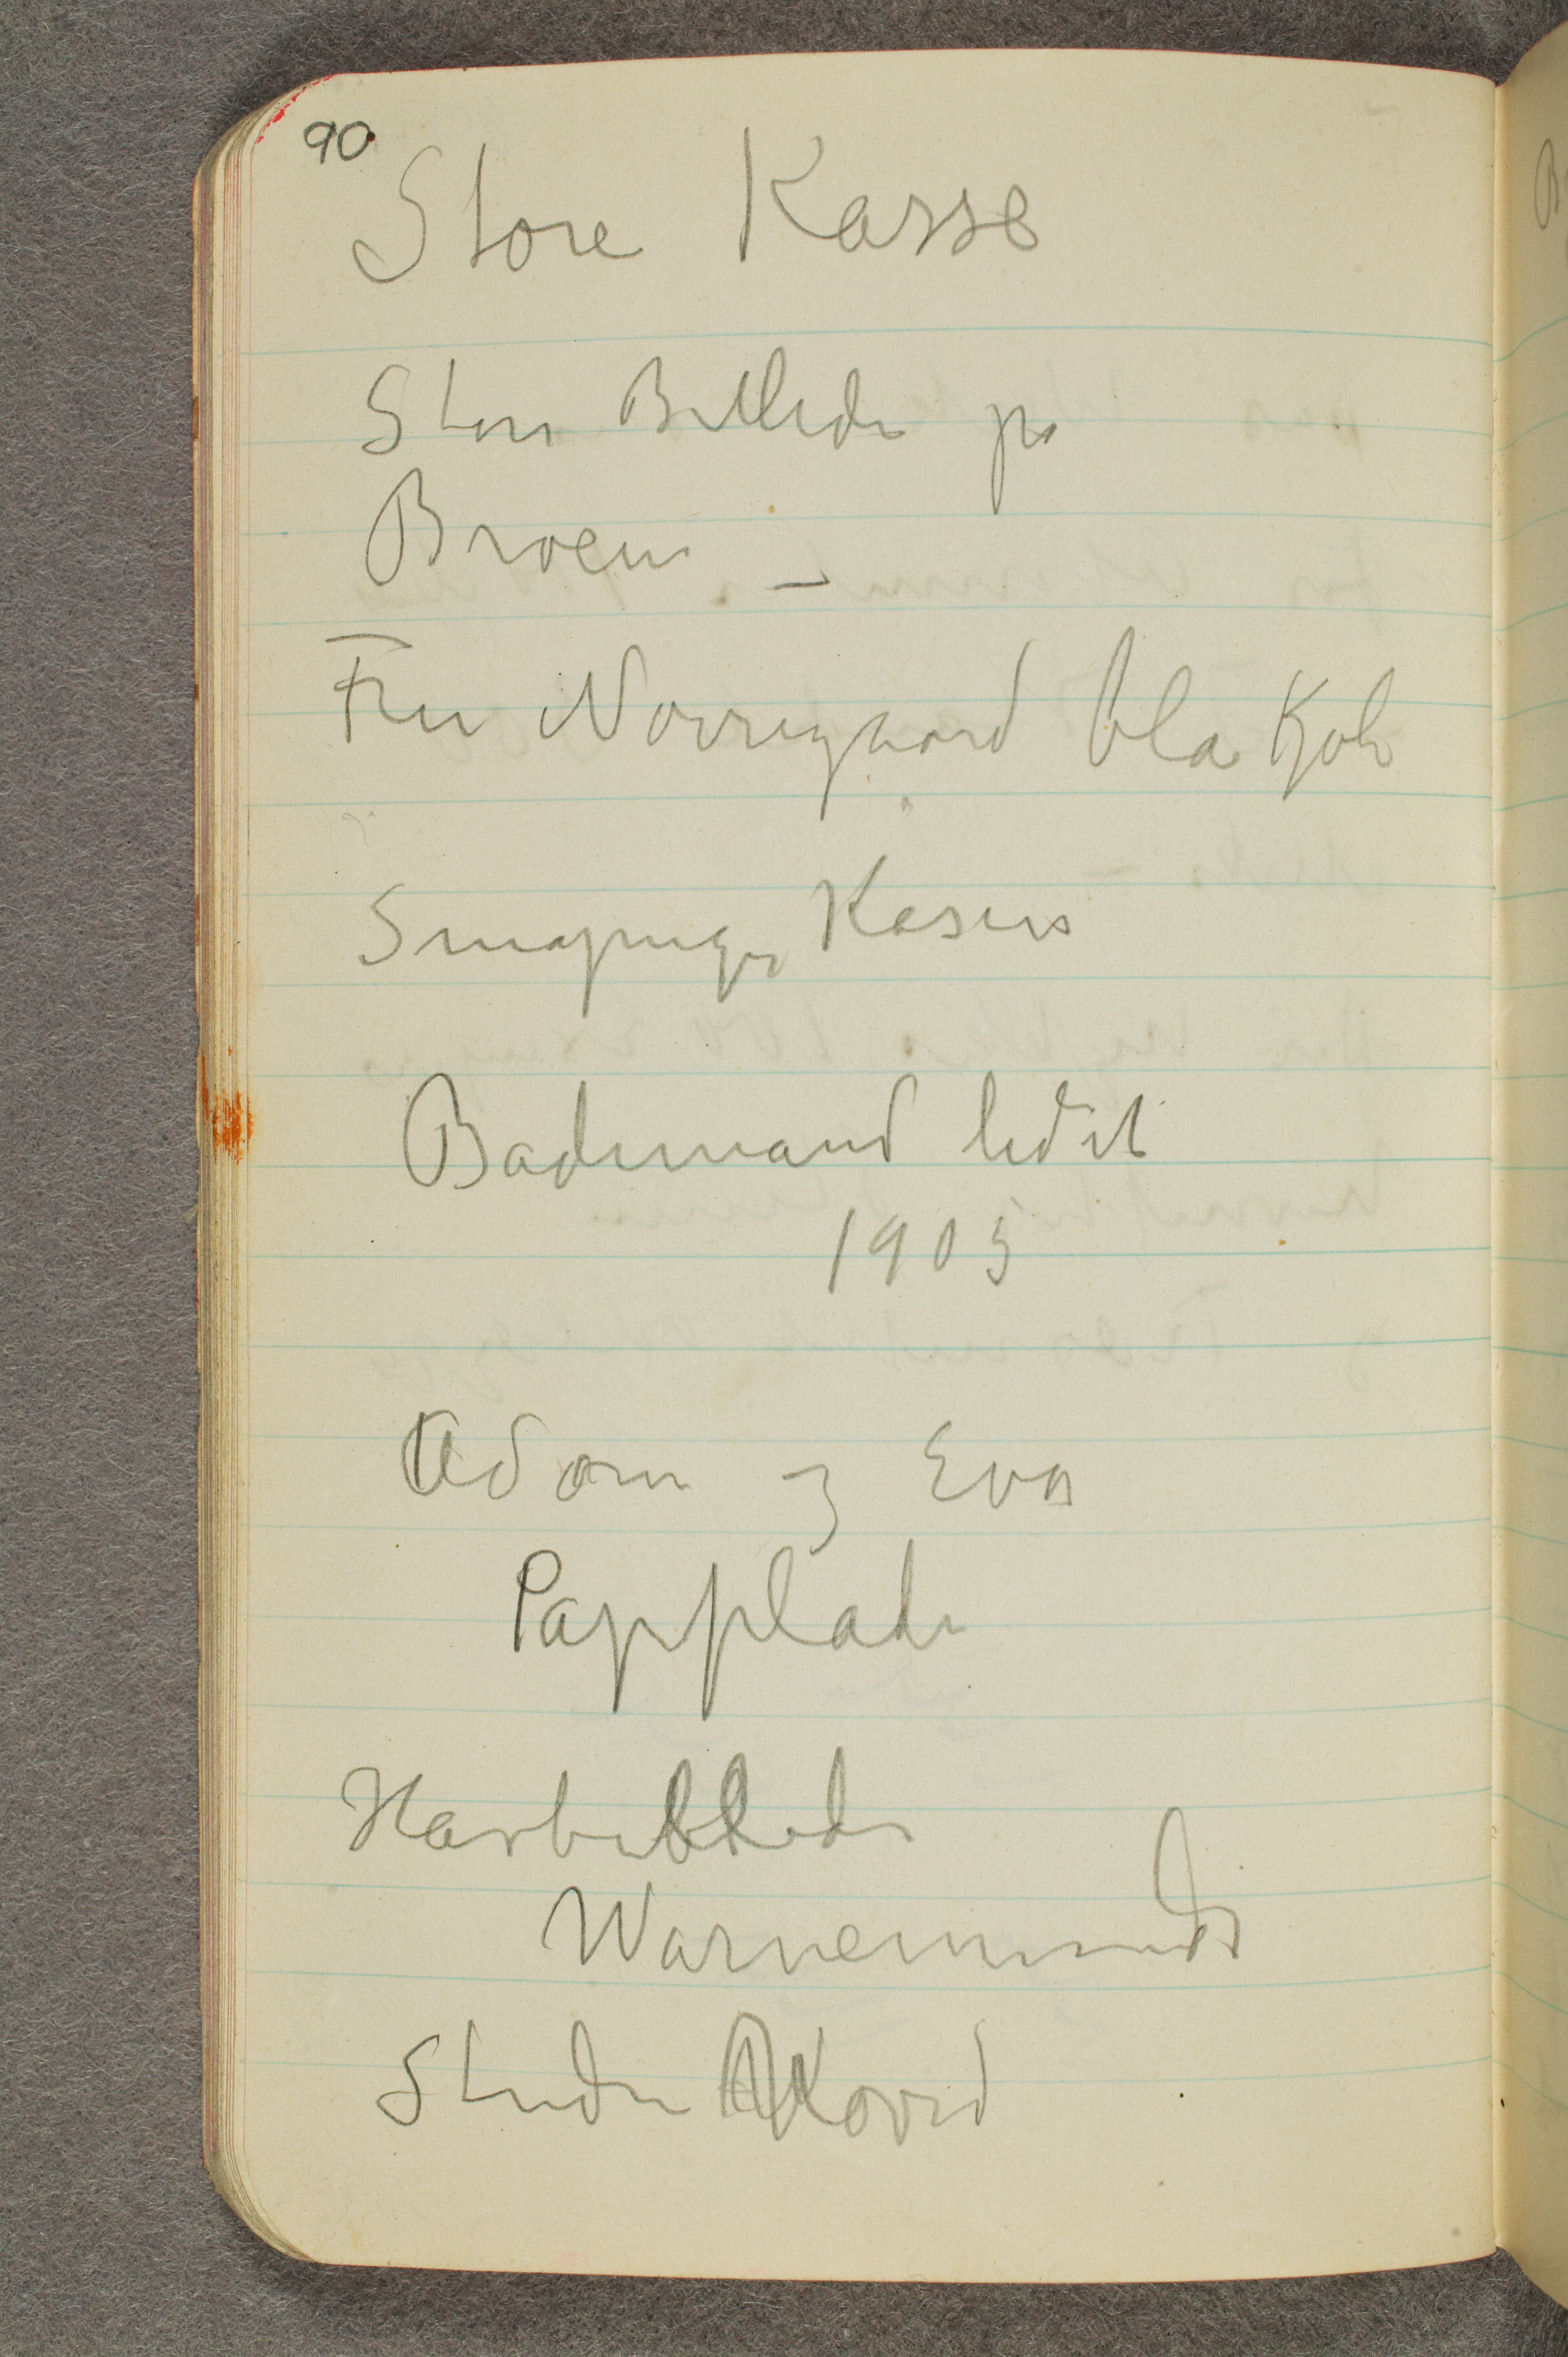 90
Store Kasse
Store Billede på
Broen –
Fru Nørregaard blå Kjole
Småpiger Kösen
Bademand lidet
1905
Adam og Eva
Papplade
Havbillede
Warnemünde
Studie Kovrd